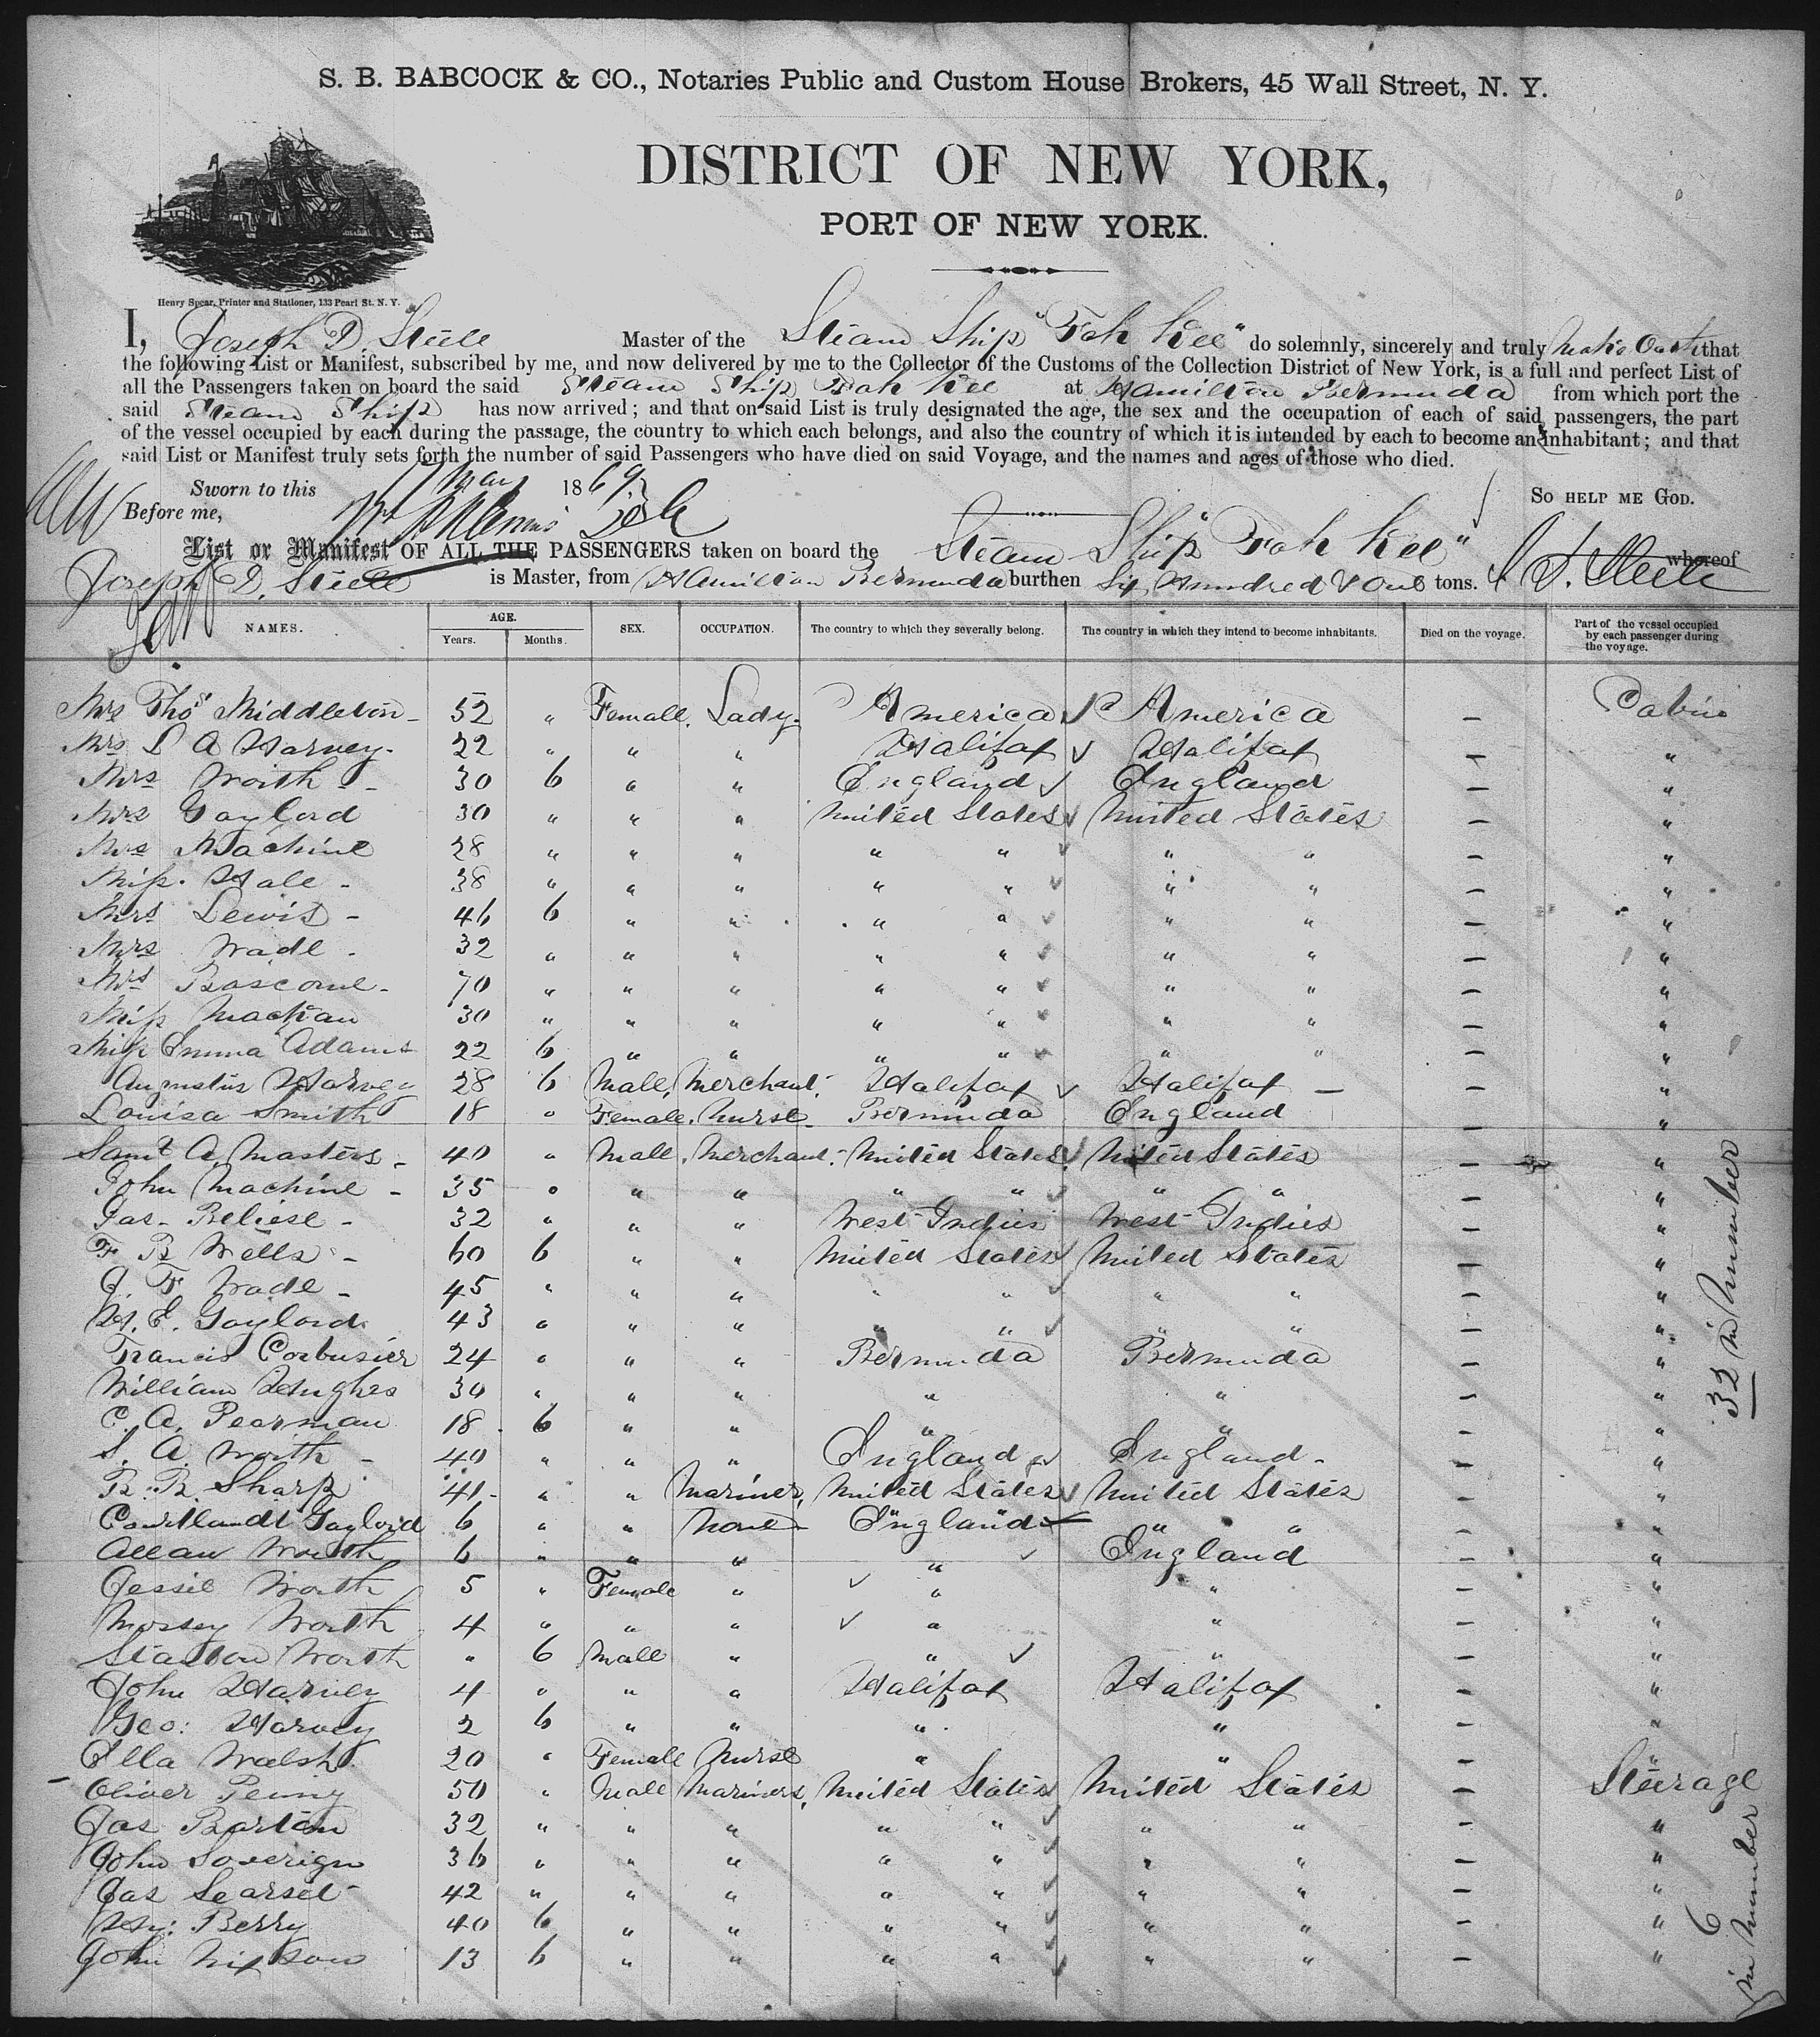 S. B. BABCOCK & CO., Notaries Public and Custom House Brokers, 45 Wall Street, N. Y.
DISTRICT OF NEW YORK,
PORT OF NEW YORK.
Henry Spear, Printer and Stationer, 133 Pearl St. N. Y.
I, Joseph D. Steele Master of the Steam Ship "Fah Kee" do solemnly, sincerely and truly make Oath that
the following List or Manifest, subscribed by me, and now delivered by me to the Collector of the Customs of the Collection District of New York, is a full and perfect List of
all the Passengers taken on board the said Steam Ship Fah Kee at Hamilton Bermuda from which port the
said Steam Ship has now arrived; and that on said List is truly designated the age, the sex and the occupation of each of said passengers, the part
of the vessel occupied by each during the passage, the country to which each belongs, and also the country of which it is intended by each to become an inhabitant; and that
said List or Manifest truly sets forth the number of said Passengers who have died on said Voyage, and the names and ages of those who died.
Sworn to this May 1869 SO HELP ME GOD.
Before me,
List or Manifest OF ALL THE PASSENGERS taken on board the Steam Ship "Fah Kee" whereof
Joseph D. Steele is Master, from Hamilton Bermuda burthen Six Hundred & One tons. J. D. Steele
NAMES. AGE. Years. Months. SEX. OCCUPATION. The country to which they severally belong. The country in which they intend to become inhabitants. Died on the voyage. Part of the vessel occupied by each passenger during the voyage.
Mrs Thos Middleton - 52 " Female. Lady. America America - Cabin
Mrs S A Harvey - 22 " " " Halifax Halifax - "
Mrs Worth - 30 6 " " England England - "
Mrs Gaylord 30 " " " United States United States - "
Mrs Machine 28 " " " " " " " - "
Miss. Hale - 38 " " " " " " " - "
Mrs Lewis - 46 6 " " " " " " - "
Mrs Wade - 32 " " " " " " " - "
Mrs Bascome - 70 " " " " " " " - "
Miss 30 " " " " " " " - "
Miss Emma Adams 22 6 " " " " " " - "
Augustus Harvey 28 6 Male, Merchant. Halifax Halifax - "
Louisa Smith 18 " Female. Nurse. Bermuda England - "
Saml A. Masters - 40 " Male, Merchant. United States United States - "
John Machine - 35 " " " " " " " - "
Jas - Beliese - 32 " " " West Indies West Indies - "
F B Wells - 60 6 " " United States United States - "
J. F Wade - 45 " " " " " " " - "
H. E. Gaylord 43 " " " " " " " - "
Francis Corbusier 24 " " " Bermuda Bermuda - "
William Hughes 30 " " " " " - "
C. A. Pearman 18 6 " " " " - "
S. A. Worth - 40 " " " England England - "
B. B. Sharp 41 - " " Mariner, United States United States - "
Courtlandt Gaylord 6 " " None England " " - "
Allan Worth 6 " " " " England - "
Jessie Worth 5 " Female " " " - "
Mossey Worth 4 " " " " " - "
Stanton Worth " 6 Male " " " - "
John Harvey 4 " " " Halifax Halifax - "
Geo: Harvey 2 6 " " " " - "
Ella Walsh 20 " Female Nurse " " - "
Oliver Penny 50 " Male Mariners, United States United States - Steerage
Jas Barton 32 " " " " " " " - "
John Soverign 36 " " " " " " " - "
Jas Searsei 42 " " " " " " " - "
Hy: Berry 40 6 " " " " " " - "
John Nixson 13 6 " " " " " " - "
32 in Number
6 in number